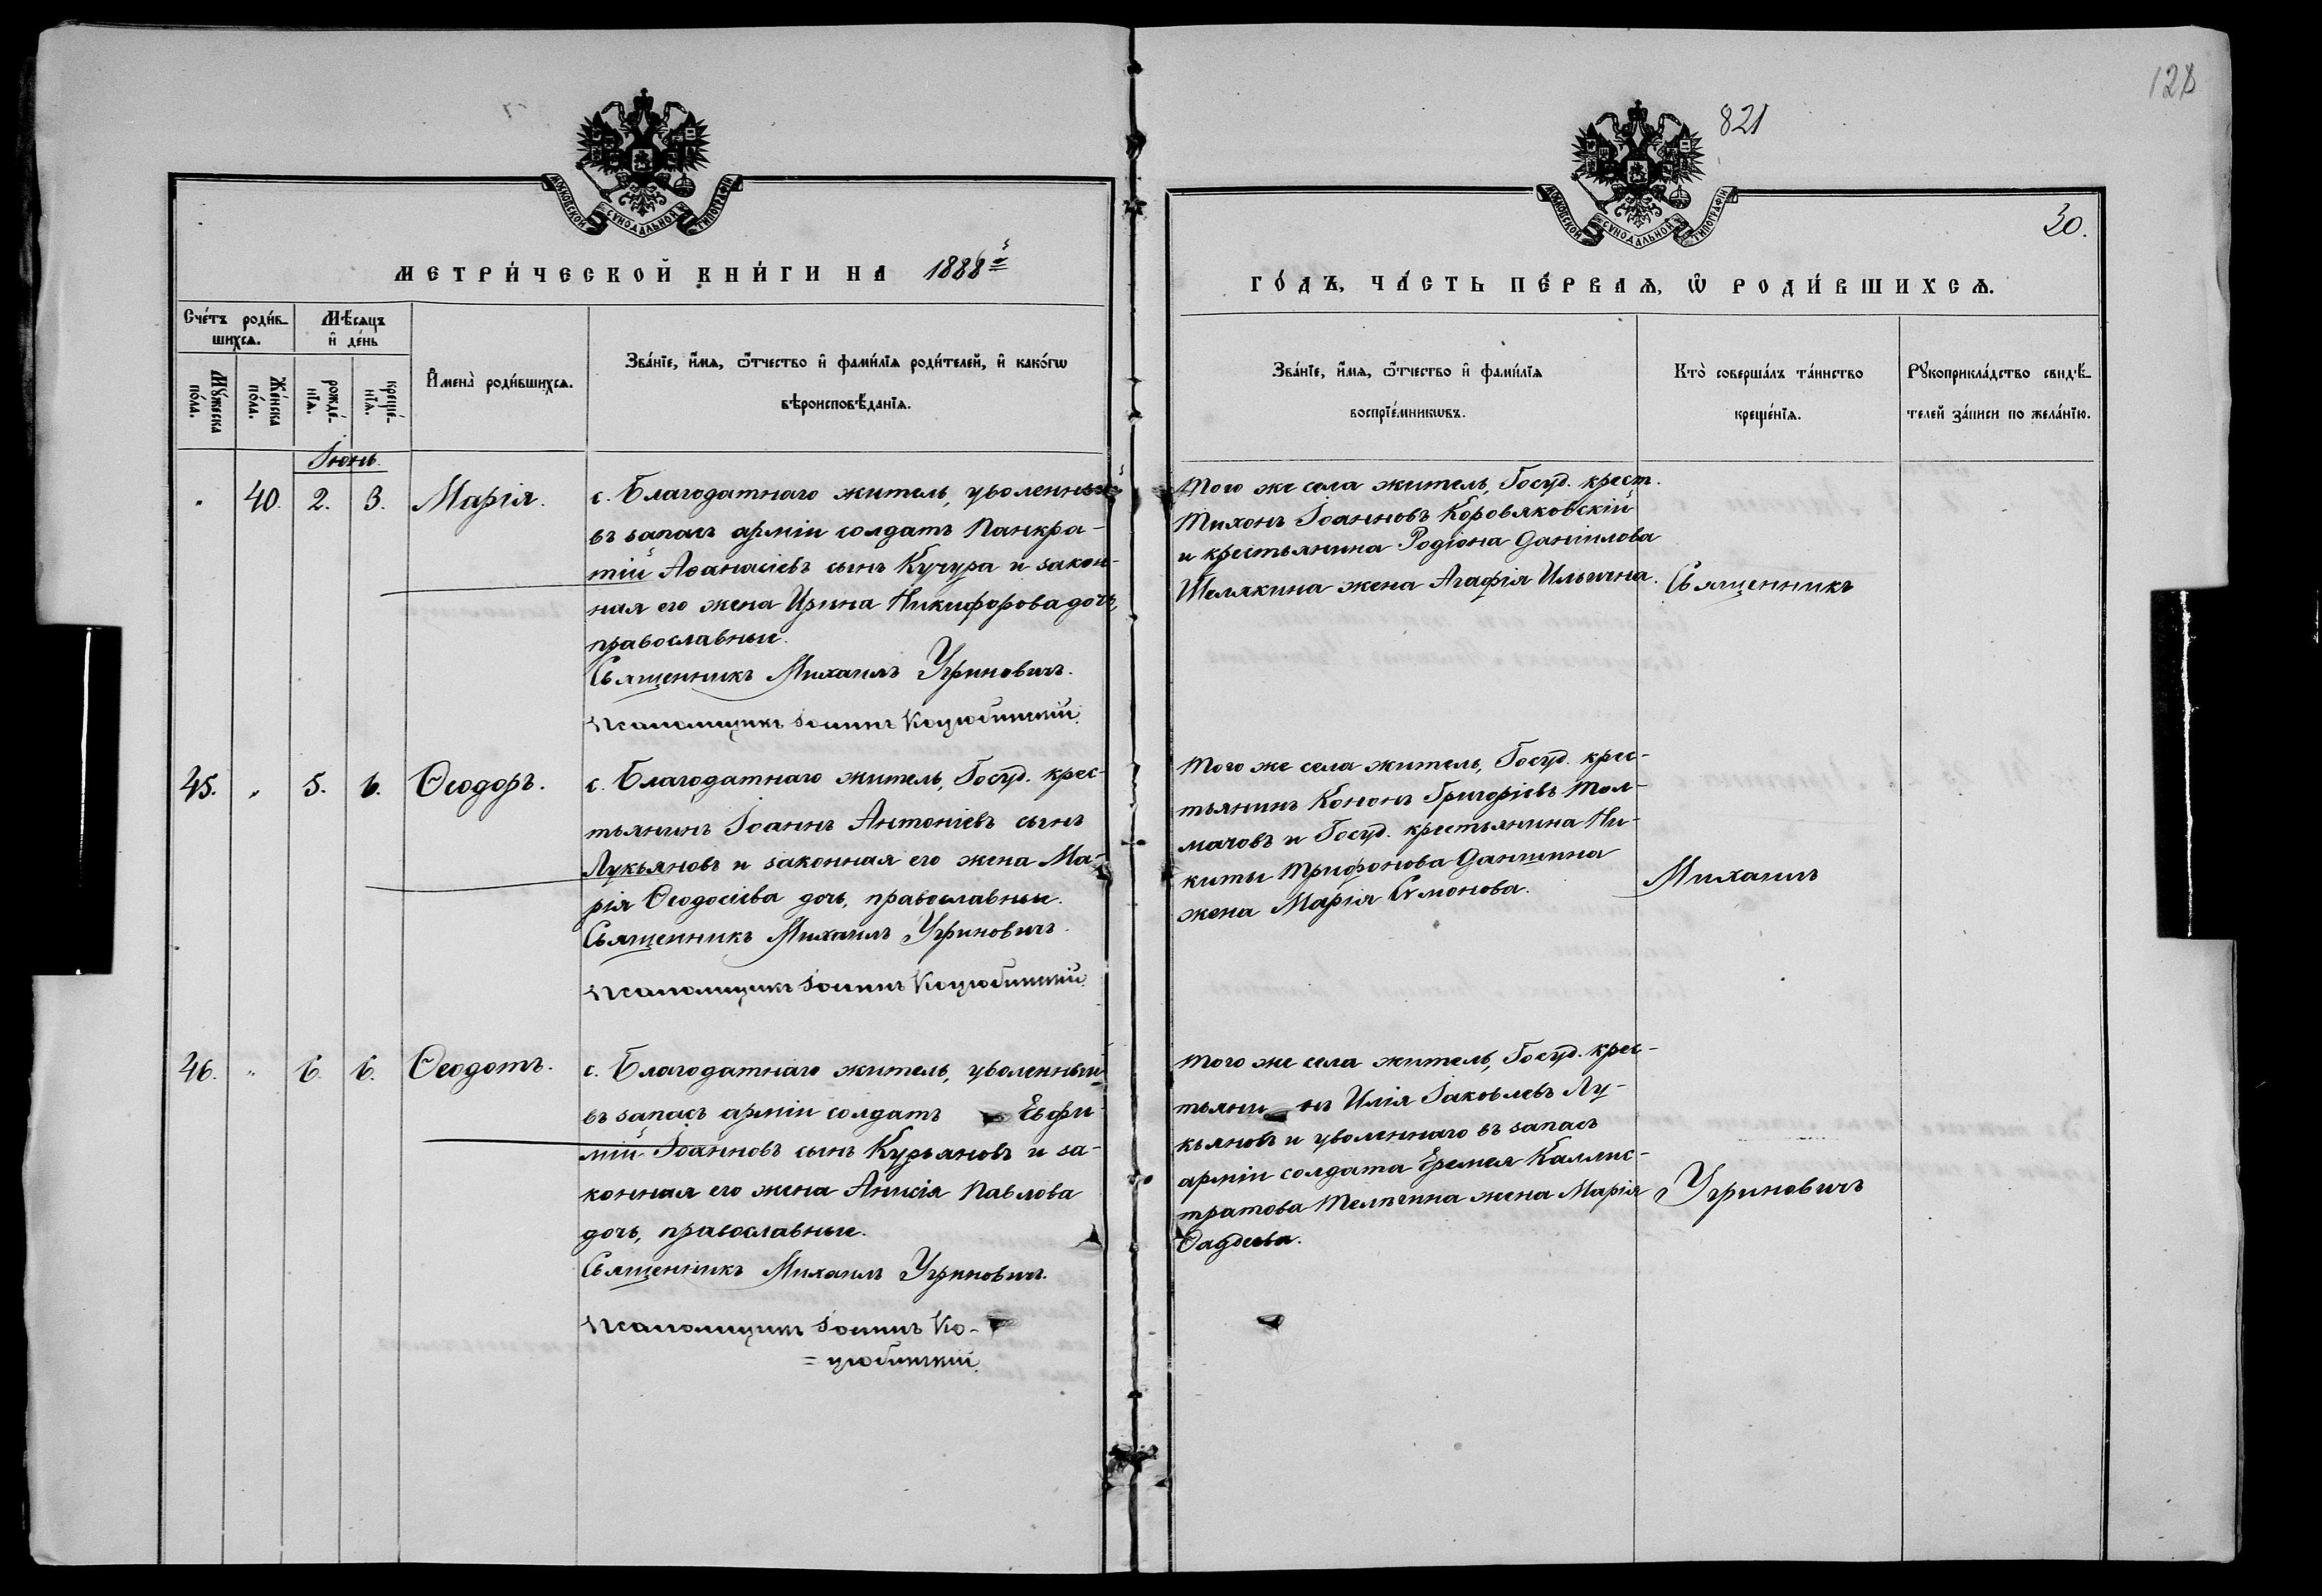 128
821
30.
МОСКОВСКОЙ СѴНОДАЛЬНОЙ ТИПОГРАФІИ
МОСКОВСКОЙ СѴНОДАЛЬНОЙ ТИПОГРАФІИ
МЕТРИ́ЧЕСКОЙ КНИ́ГИ НА 1888й
ГО́ДЪ, ЧА́СТЬ ПЕ́РВАѦ, Ѡ РОДИ́ВШИХСѦ.
Сче́тъ роди́в-
шихсѧ.
Мѣ́сѧцъ
и҆ де́нь
Мꙋ́жеска
по́ла.
Же́нска
по́ла.
рожде́-
нїѧ.
креще́-
нїѧ.
И҆мена̀ роди́вшихсѧ.
Зва́нїе, и҆́мѧ, ѻ҆́тчество и҆ фами́лїѧ роди́телей, и҆ како́гѡ
вѣроисповѣ́данїѧ.
Зва́нїе, и҆́мѧ, ѻ҆́тчество и҆ фами́лїѧ
воспрїе́мникѡвъ.
Кто̀ соверша́лъ та́инство
креще́нїѧ.
Рꙋкоприкла́дство свидѣ́-
телей за́писи по жела́нїю.
Іюнь.
" 40. 2. 3. Марія.
с. Благодатнаго житель, уволенный
въ запасъ арміи солдатъ Панкра-
тій Аѳанасіевъ сынъ Кучура и закон-
ная его жена Ирина Никифорова дочь,
православные.
Священникъ Михаилъ Угриновичъ.
Псаломщикъ Іоаннъ Коцюбинскій.
Того же села житель, Госуд. крест.
Тихонъ Іоанновъ Коровяковскій
и крестьянина Родіона Даніилова
Шелякина жена Агафія Ильична.
Священникъ
45. " 5. 6. Ѳеодоръ.
с. Благодатнаго житель, Госуд. крес-
тьянинъ Іоаннъ Антоніевъ сынъ
Лукьяновъ и законная его жена Ма-
рія Ѳеодосіева дочь, православные.
Священникъ Михаилъ Угриновичъ.
Псаломщикъ Іоаннъ Коцюбинскій.
Того же села житель, Госуд. крес-
тьянинъ Кононъ Григоріевъ Тол-
мачовъ и Госуд. крестьянина Ни-
киты Трифонова Даншина
жена Марія Симонова.
Михаилъ
46. " 6. 6. Ѳеодотъ.
с. Благодатнаго житель, уволенный
въ запасъ арміи солдатъ Евфи-
мій Іоанновъ сынъ Курьяновъ и за-
конная его жена Анисія Павлова
дочь, православные.
Священникъ Михаилъ Угриновичъ.
Псаломщикъ Іоаннъ Ко-
=цюбинскій.
Того же села житель, Госуд. крес-
тьянинъ Илія Іаковлевъ Лу-
кьяновъ и уволеннаго въ запасъ
арміи солдата Еремея Каллис-
тратова Телпгина жена Марія
Ѳадеева.
Угриновичъ